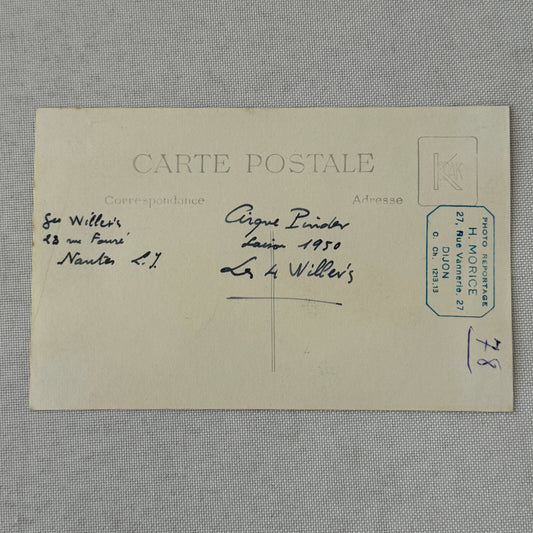 CARTE POSTALE
Correspondance
Adresse
Willer's
23 rue Fouré
Nantes L.I.
Cirque Pinder
Saison 1950
Les 4 Willer's
PHOTO REPORTAGE
H. MORICE
27, Rue Vannerie, 27
DIJON
C. Ch. 1213.13
78